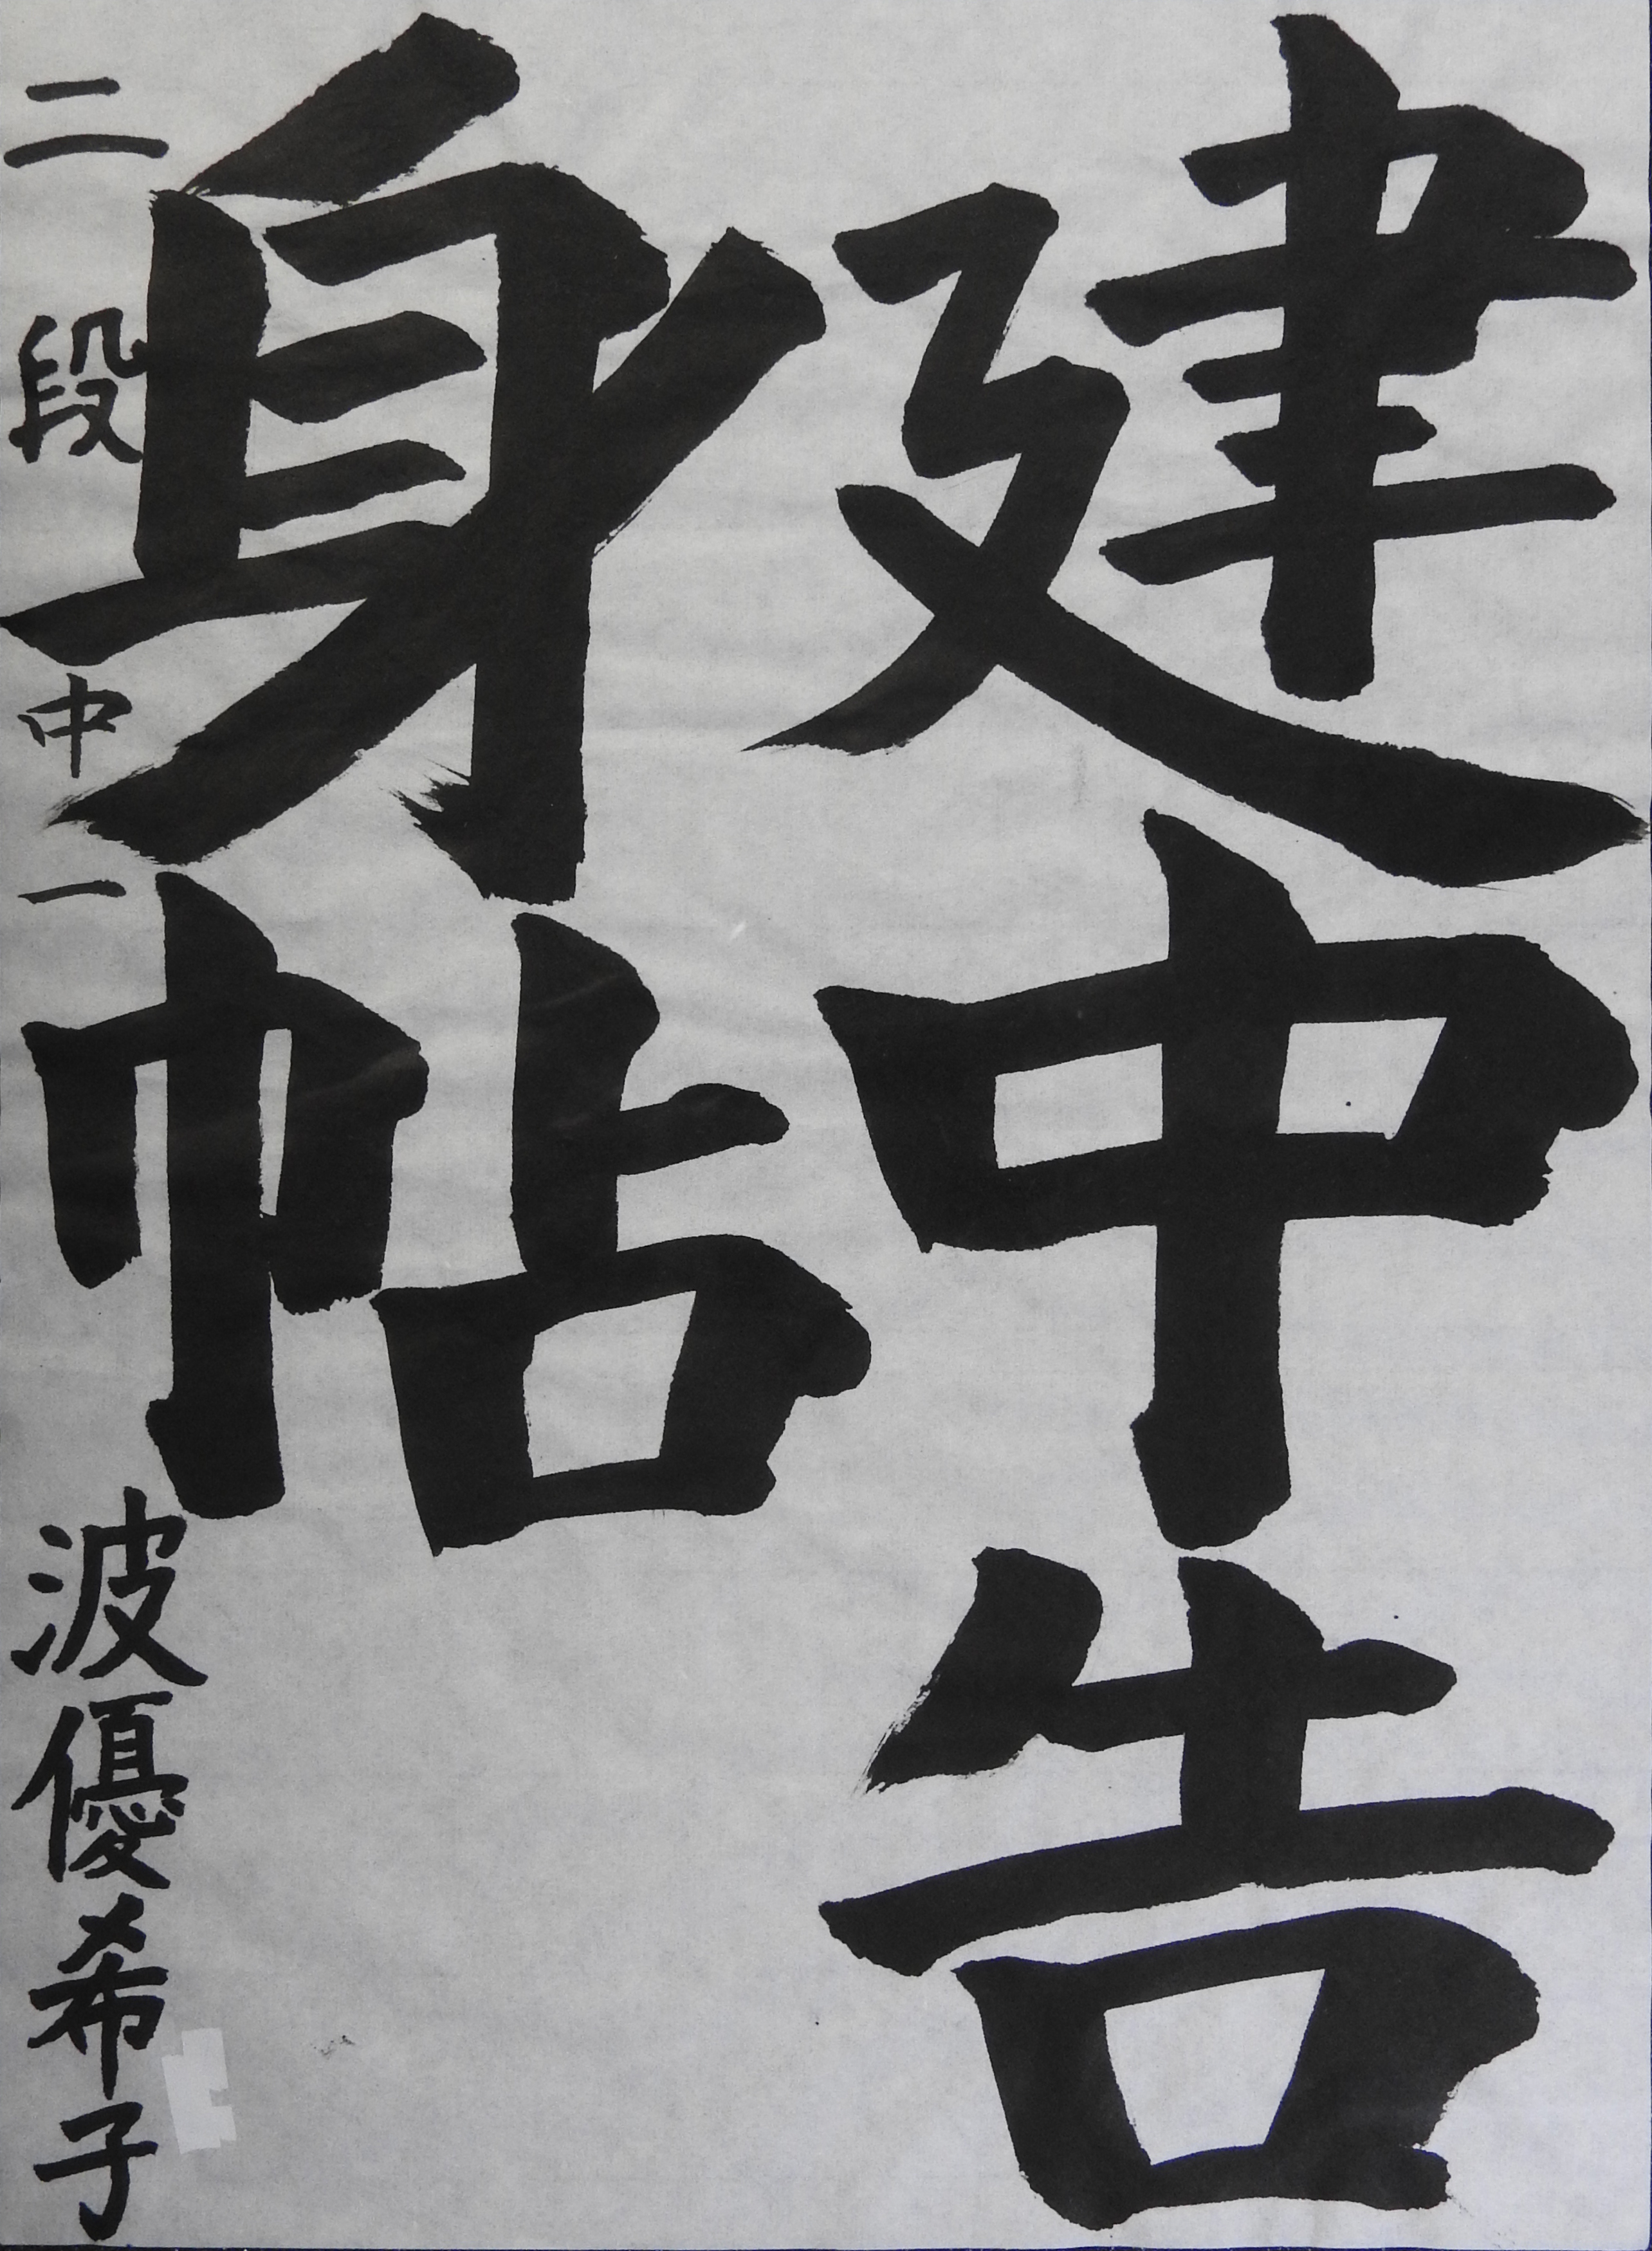 建中告
身帖
二段 中一 波優希子